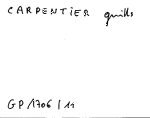 CARPENTIER quills
GP/1706/11